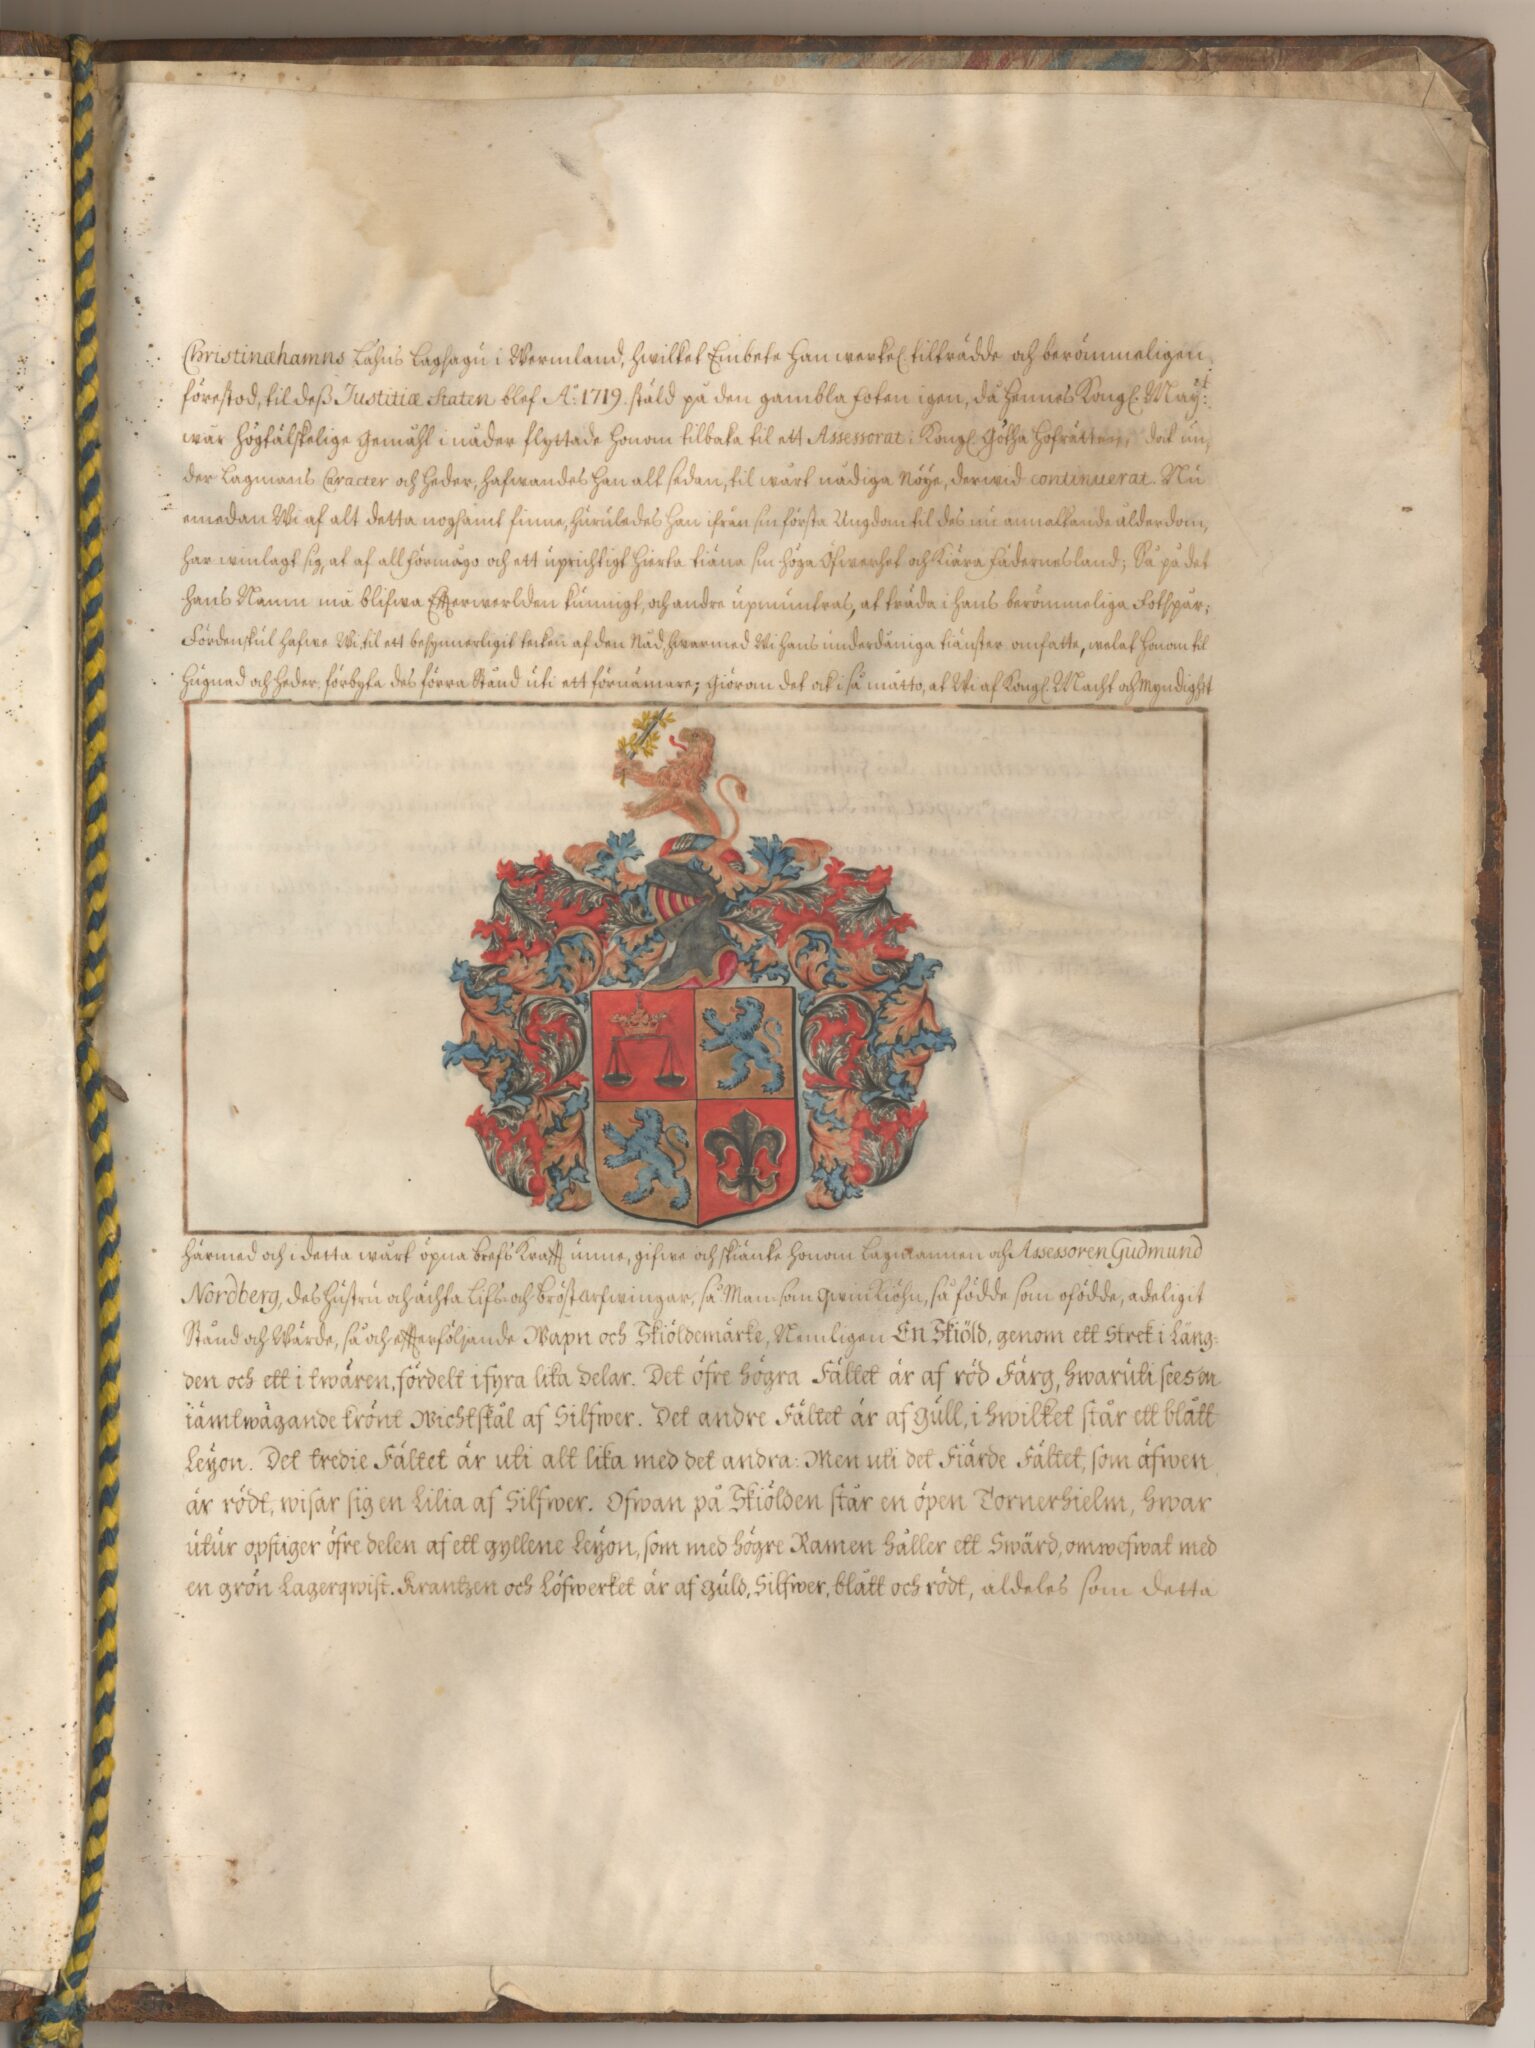 Christinæhamns Lähns Laghsagu i Wermland, hwilket Embete Han werkel. tilträdde och berömmeligen
förestod, til deß Justitiæ Staten blef A:o 1719. stäld på den gambla foten igen, då Hennes Kongl. May:t
wår Högtälskelige Gemåhl i nåder flyttade Honom tilbaka til ett Assessorat i Kongl. Götha Hofrätten, dock un,
der Lagmans Caracter och Heder, hafwandes Han alt sedan, til wårt nådiga Nöye, derwid continuerat. Nu
emedan Wi af alt detta noghsamt finne, huruledes Han ifrån sin första Ungdom til des nu annalkande ålderdom,
har winlagt sig, at af all förmågo och ett uprichtigt Hierta tiäna sin Höga Öfwerhet och Kiära Fädernesland; Så på det
hans Namn må blifwa Effterwerlden kunnigt, och andre upmuntras, at träda i hans berömmeliga Fotspår;
Fördenskul hafwe Wi, til ett besynnerligit tecken af den Nåd, hwarmed Wi hans underdåniga tiänster omfatte, welat Honom til
Hugnad och Heder förbyta des förra Stånd uti ett förnämare; Giörom det ock i så måtto, at Wi af Kongl. Macht och Myndight
härmed och i detta wårt öpna Brefs Krafft unne, gifwe och skiänke Honom Lagmannen och Assessoren Gudmund
Nordberg, des Hustru och ächta Lifs och Bröstarfwingar, så Man som Qwin Kiöhn, så födde som ofödde, adeligit
Stånd och Wärde, så och effterföljande Wapn och Skiöldemärke, Nemligen En Skiöld, genom ett Strek i Läng,
den och ett i twären, fördelt i fyra lika delar. Det öfre högra Fältet är af röd Färg, hwaruti sees en
iämtwägande krönt Wichtskål af Silfwer. Det andre Fältet är af gull, i hwilket står ett blått
Leyon. Det tredie Fältet är uti alt lika med det andra: Men uti det Fiärde Fältet, som äfwen
är rödt, wisar sig en Lilia af Silfwer. Ofwan på Skiölden står en öpen Tornerhielm, hwar
utur opstiger öfre delen af ett gyllene Leyon, som med högre Ramen håller ett Swärd, omwefwat med
en grön Lagerqwist. Krantzen och Löfwerket är af guld, Silfwer, blått och rödt, aldeles som detta